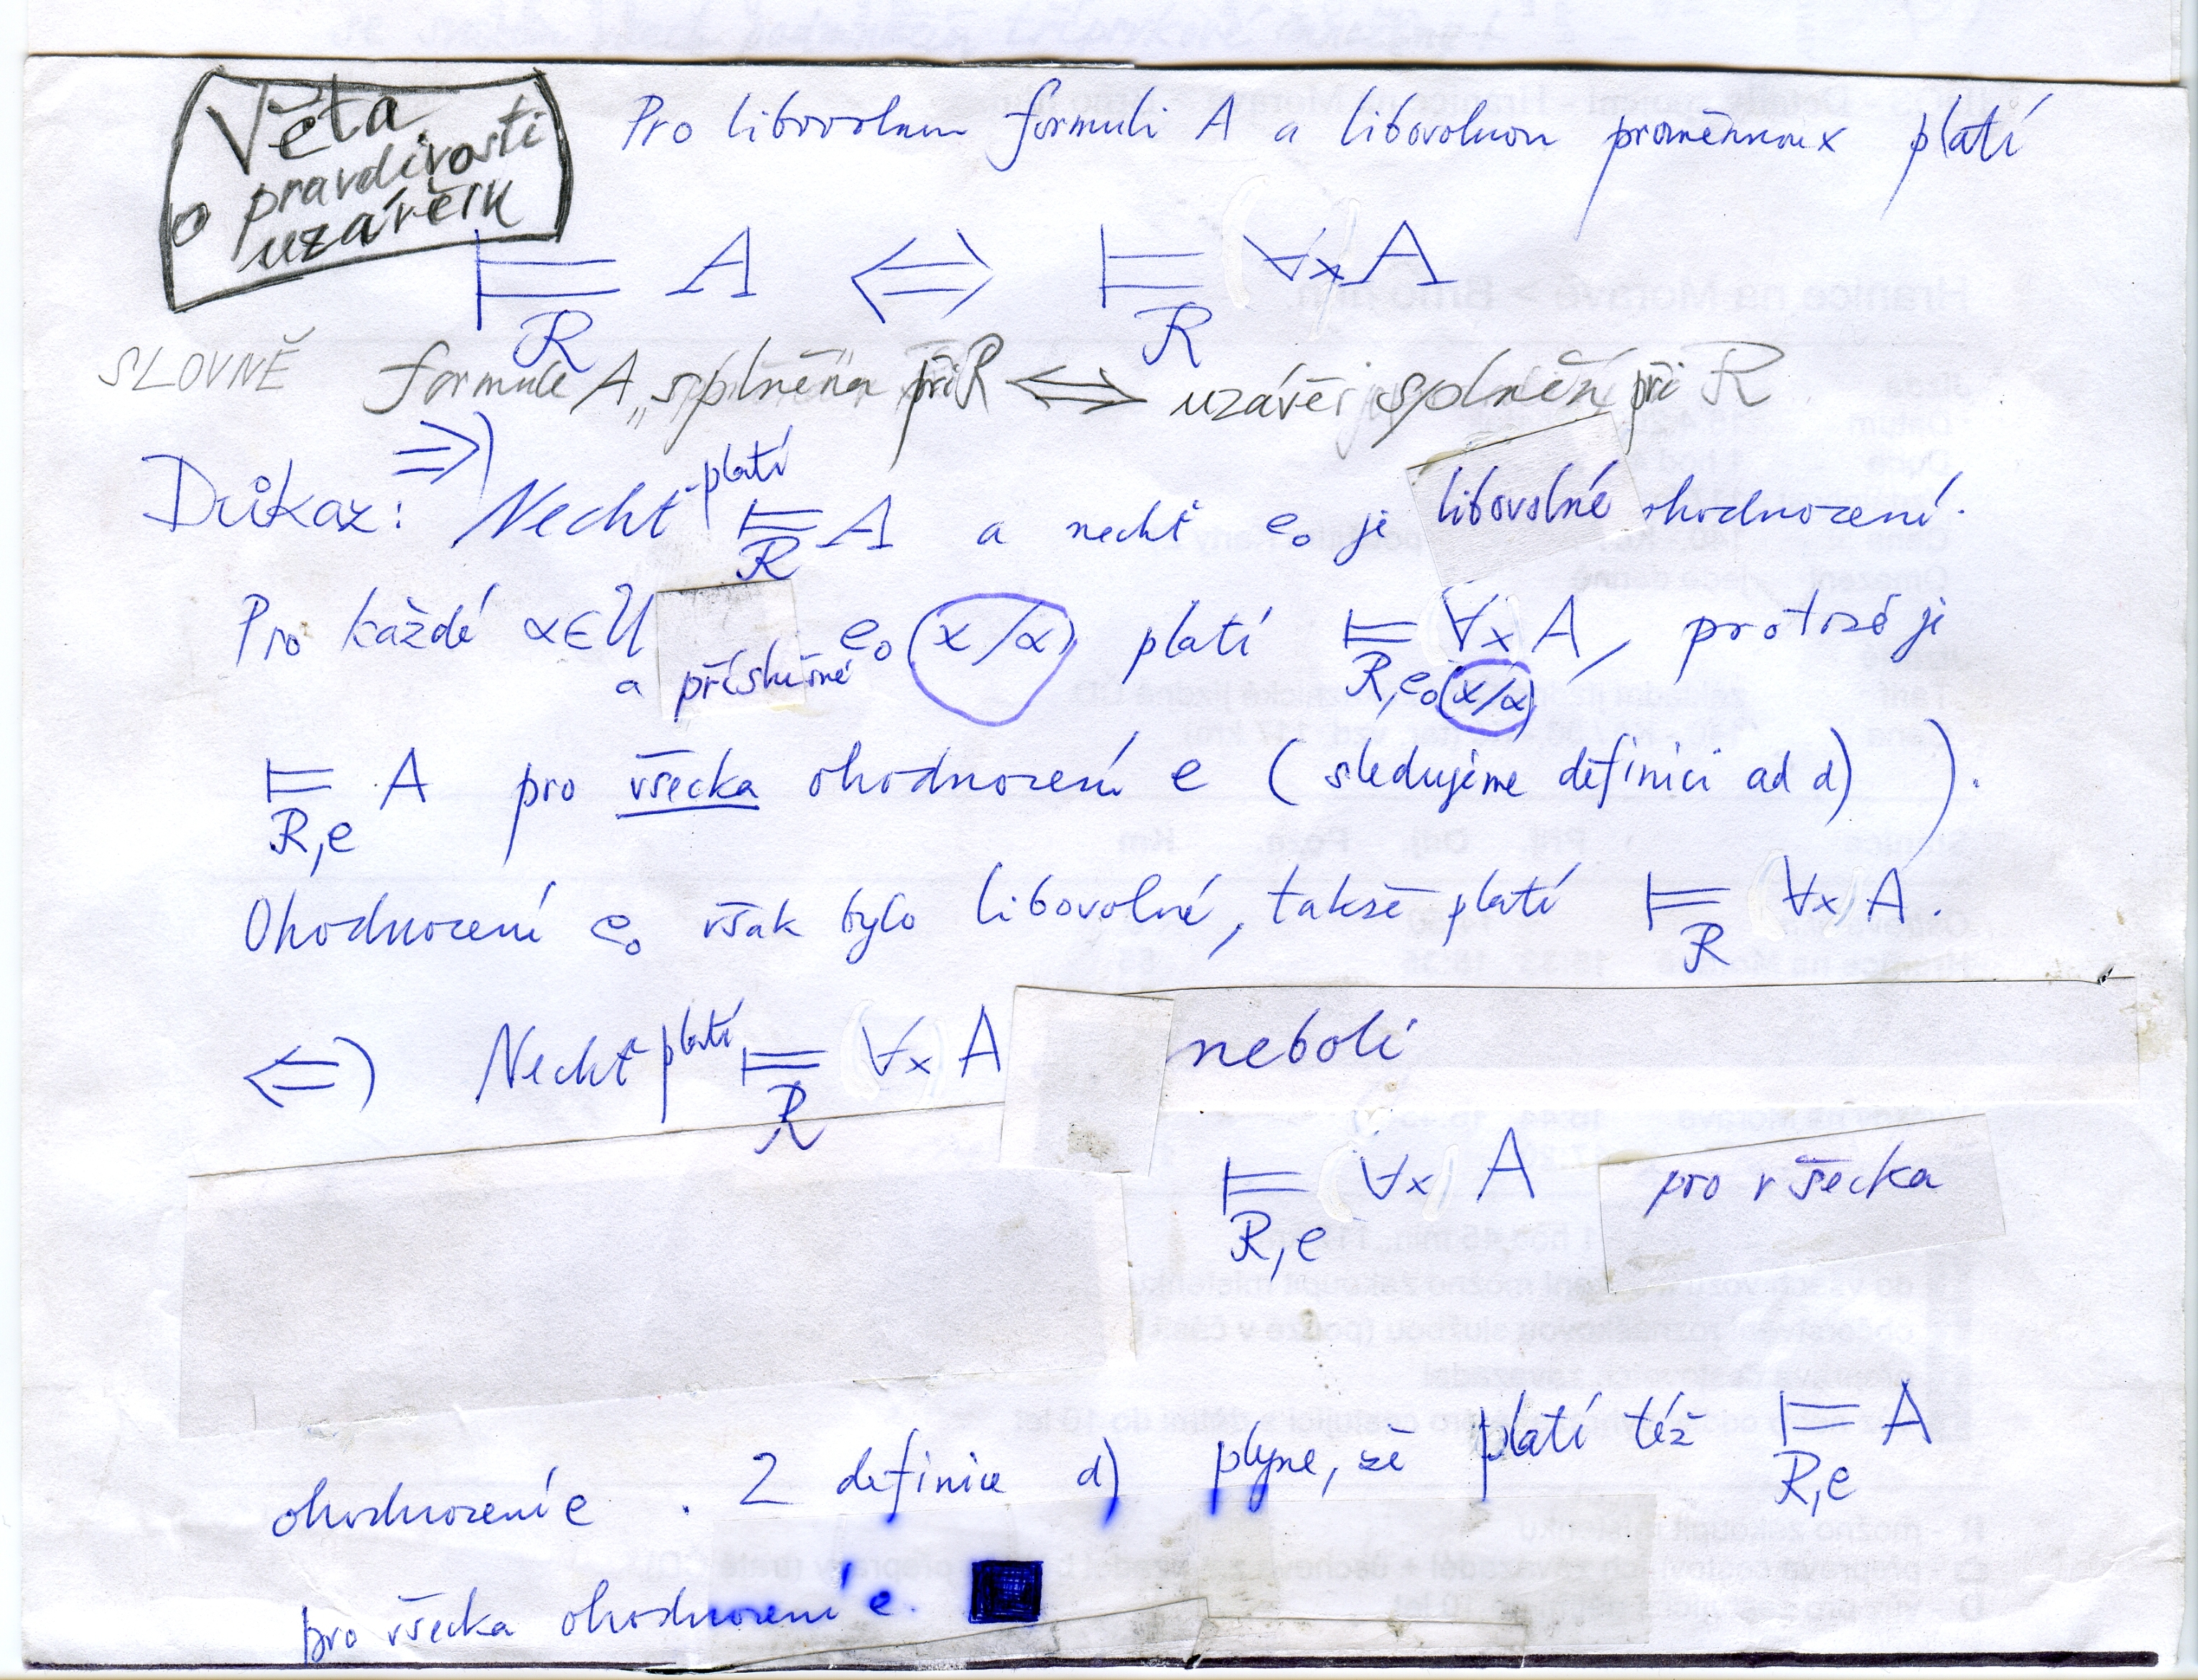 Věta
o pravdivosti
uzávěrů
Pro libovolnou formuli A a libovolnou proměnnou x platí
⊨_R A ⇔ ⊨_R ∀x A
SLOVNĚ formule A splněna při R ⇔ uzávěr splněn při R
Důkaz: ⇒) Nechť platí ⊨_R A a nechť e₀ je libovolné ohodnocení.
Pro každé α∈U a příslušné e₀(x/α) platí ⊨_{R,e₀(x/α)} ∀x A, protože je
⊨_{R,e} A pro všecka ohodnocení e (sledujeme definici ad d) ).
Ohodnocení e₀ však bylo libovolné, takže platí ⊨_R ∀x A.
⇐) Nechť platí ⊨_R ∀x A neboli
⊨_{R,e} ∀x A pro všecka
ohodnocení e . Z definice d) plyne, že platí též ⊨_{R,e} A
pro všecka ohodnocení e. ■